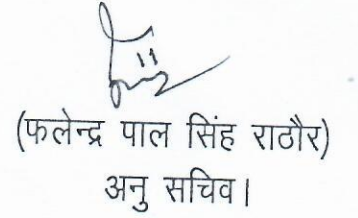 (फलेन्द्र पाल सिंह राठौर)
अनु सचिव।